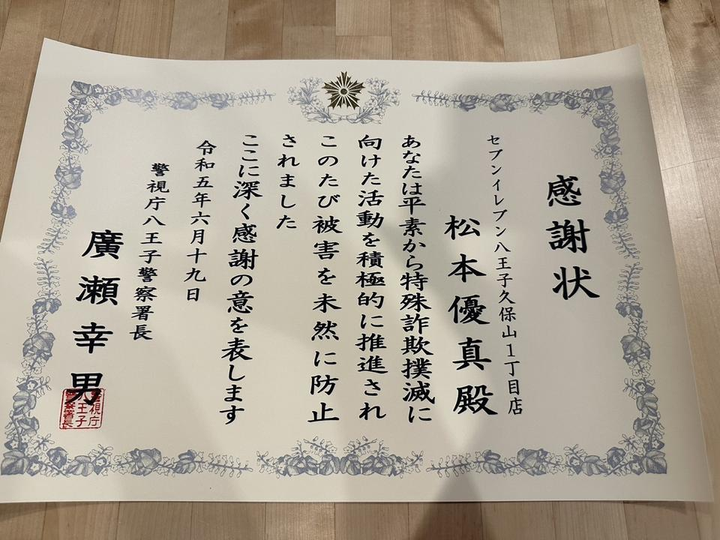 感謝状
セブンイレブン八王子久保山1丁目店
松本優真殿
あなたは平素から特殊詐欺撲滅に
向けた活動を積極的に推進され
このたび被害を未然に防止
されました
ここに深く感謝の意を表します
令和五年六月十九日
警視庁八王子警察署長
廣瀬幸男
警視庁
八王子
警察署長